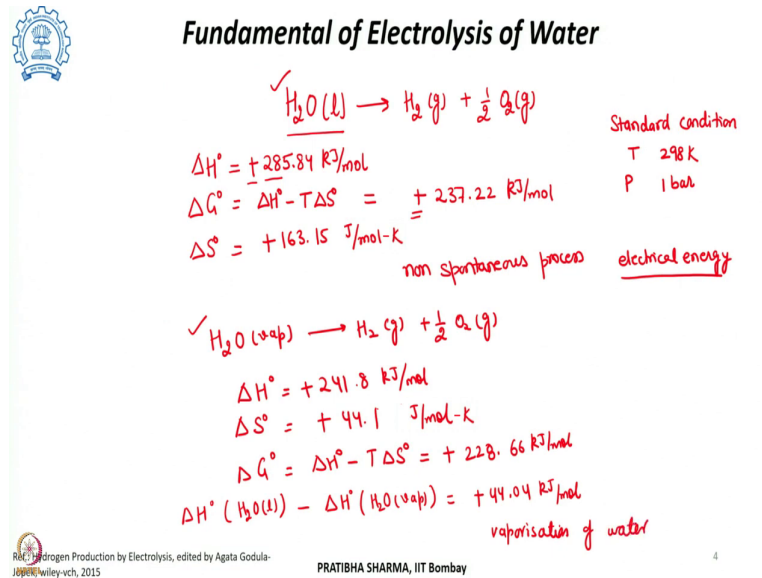 Fundamental of Electrolysis of Water
✓ H₂O(l) → H₂(g) + ½ O₂(g)
Standard condition
T 298K
P 1 bar
ΔH° = +285.84 kJ/mol
ΔG° = ΔH° - TΔS° = + 237.22 kJ/mol
ΔS° = +163.15 J/mol-K
non spontaneous process electrical energy
✓ H₂O(vap) → H₂(g) + ½ O₂(g)
ΔH° = +241.8 kJ/mol
ΔS° = + 44.1 J/mol-K
ΔG° = ΔH° - TΔS° = + 228.66 kJ/mol
ΔH°(H₂O(l)) - ΔH°(H₂O(vap)) = +44.04 kJ/mol
vaporisation of water
Ref.: Hydrogen Production by Electrolysis, edited by Agata Godula-
Jopek, wiley-vch, 2015
PRATIBHA SHARMA, IIT Bombay
4